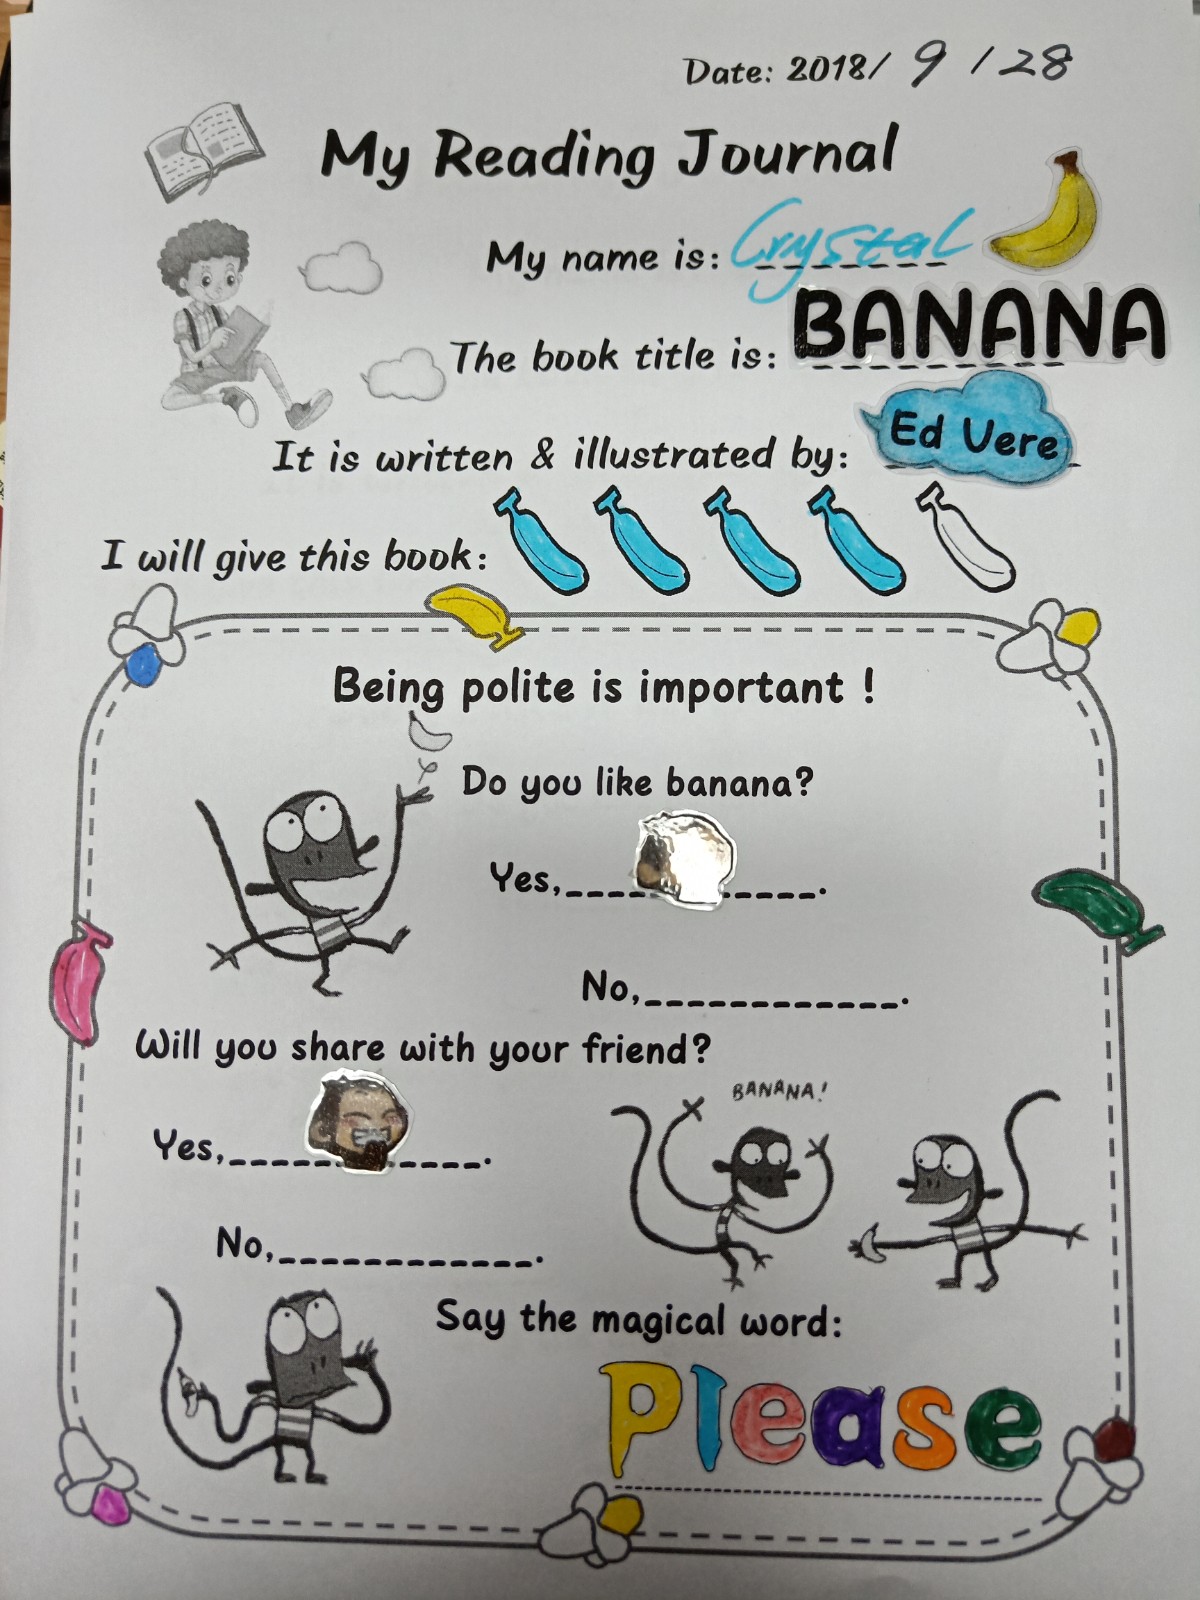 Date: 2018/ 9 / 28
My Reading Journal
My name is: Crystal
The book title is: BANANA
It is written & illustrated by: Ed Vere
I will give this book:
Being polite is important !
Do you like banana?
Yes,____________.
No,____________.
Will you share with your friend?
BANANA!
Yes,____________.
No,____________.
Say the magical word:
Please